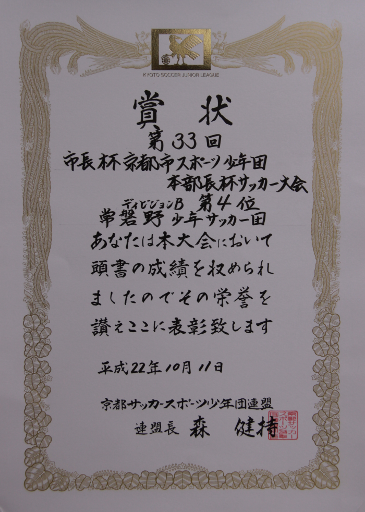 KYOTO SOCCER JUNIOR LEAGUE
賞状
第33回
市長杯京都市スポーツ少年団
本部長杯サッカー大会
ディビジョンB 第4位
常磐野少年サッカー団
あなたは本大会において
頭書の成績を収められ
ましたのでその栄誉を
讃えここに表彰致します
平成22年10月11日
京都サッカースポーツ少年団連盟
連盟長 森 健持